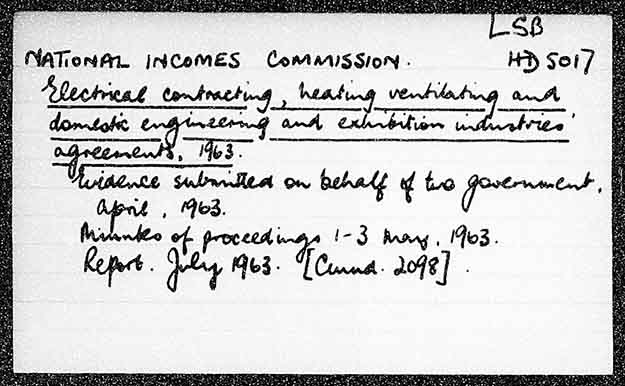 LSB
NATIONAL INCOMES COMMISSION. HD 5017
Electrical contracting, heating ventilating and
domestic engineering and exhibition industries'
agreements, 1963.
Evidence submitted on behalf of two government.
April, 1963.
Minutes of proceedings 1-3 May, 1963.
Report. July 1963. [Cmnd. 2098].